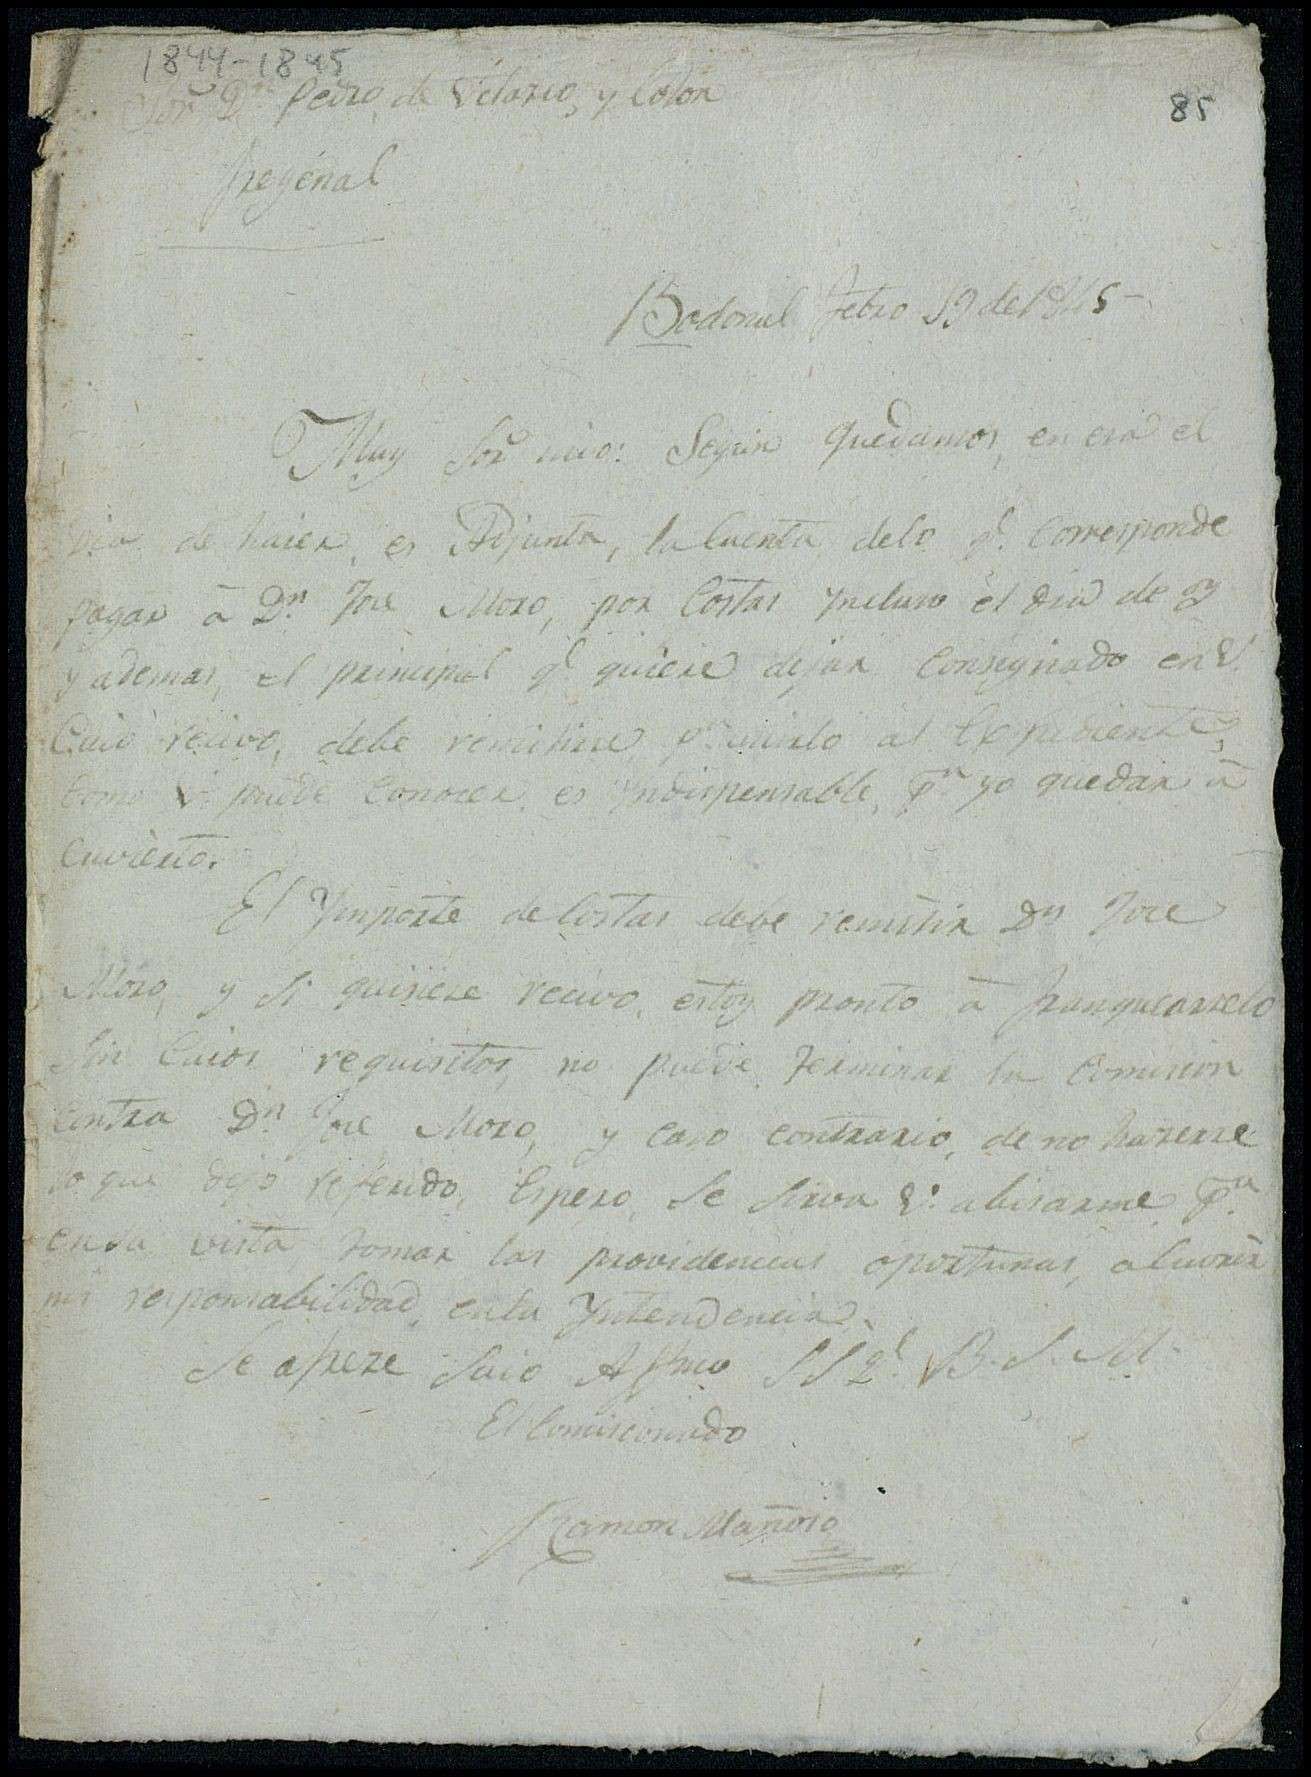 1844-1845
85
Sor. Dn. Pedro, de Velasco, y Colon
Fregenal
Bodonal Febro 19 de 1845-
Muy Sor mio: Segun quedamos, en esa el
dia de haier, es Adjunta, la Cuenta delo q.e Corresponde
pagar â Dn. Jose Moro, por Costas ynclusò el dia de oy
y ademas, el principal q.e quiere dejar Consignado en V.
Cuio recivo, debe remitirse pa. unirlo al Expediente,
Como V. puede Conocer, es yndispensable, pa. yo quedar â
Cuvierto.
El Ymporte de Costas debe remitir Dn Jose
Moro, y si quisiere recivo, estoy pronto â franquearselo
Sin Cuios requisitos, no puede terminar la Comision
Contra Dn. Jose Moro, y caso contrario, de no hazerse
lo que dejo referido, Espero, se sirva V. abisarme, pa.
en su vista tomar las providencias oportunas, a
mi responsabilidad, enla Yntendencia.
Se ofreze Suio Afmo S S Q. B. S. M.
El Comisionado
Ramon